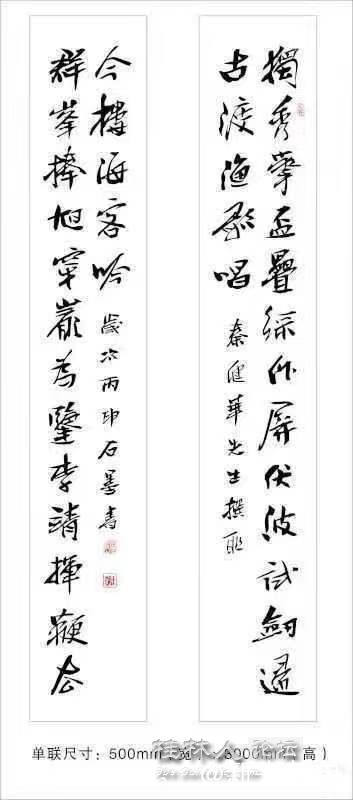 獨秀擎盃疊綵作屏伏波試劍邀
古渡漁歌唱
秦健華先生撰聯
群峯捧旭穿巖為鑒李靖揮鞭
今樓海客吟
歲次丙申石書
单联尺寸：500mm 3000mm 高）
桂林人论坛